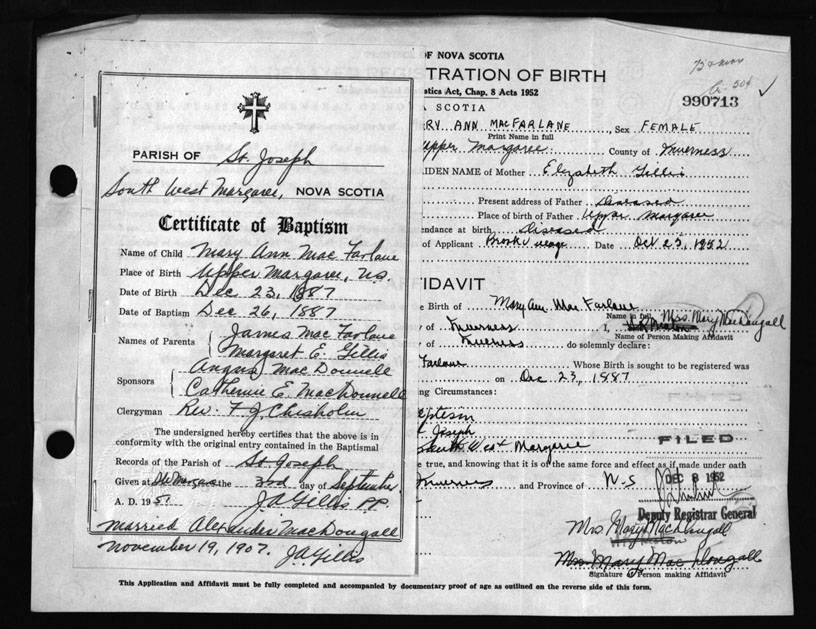 PARISH OF St. Joseph
South West Margaree, NOVA SCOTIA
Certificate of Baptism
Name of Child Mary Ann Mac Farlane
Place of Birth Upper Margaree, N.S.
Date of Birth Dec 23, 1887
Date of Baptism Dec 26, 1887
Names of Parents { James Mac Farlane
Margaret E. Gillis
Sponsors { Angus MacDonnell
Catherine E. MacDonnell
Clergyman Rev. F. J. Chisholm
The undersigned hereby certifies that the above is in
conformity with the original entry contained in the Baptismal
Records of the Parish of St. Joseph
Given at S.W. Margaree the 3rd day of September
A. D. 1951 J A Gillis P.P.
married Alexander MacDougall
November 19, 1907. J A Gillis
OF NOVA SCOTIA
TRATION OF BIRTH
tistics Act, Chap. 8 Acts 1952
A SCOTIA
990713
RY ANN MACFARLANE, Sex FEMALE
Print Name in full
Upper Margaree County of Inverness
AIDEN NAME of Mother Elizabeth Gillis
Present address of Father Diseased
Place of birth of Father Upper Margaree
endance at birth Diseased
of Applicant Brook Village Date Oct 25, 1952
FFIDAVIT
e Birth of Mary Ann Mac Farlane
Name in full
y of Inverness I, Mrs. Mary MacDougall
Name of Person Making Affidavit
of Inverness do solemnly declare:
Farlane Whose Birth is sought to be registered was
on Dec 23, 1887
ing Circumstances:
aptism
t Joseph
South West Margaree
e true, and knowing that it is of the same force and effect as if made under oath
Inverness and Province of N-S
FILED
DEC 8 1952
Deputy Registrar General
Mrs. Mary MacDougall
Mrs. Mary Mac Dougall
Signature of Person making Affidavit
This Application and Affidavit must be fully completed and accompanied by documentary proof of age as outlined on the reverse side of this form.